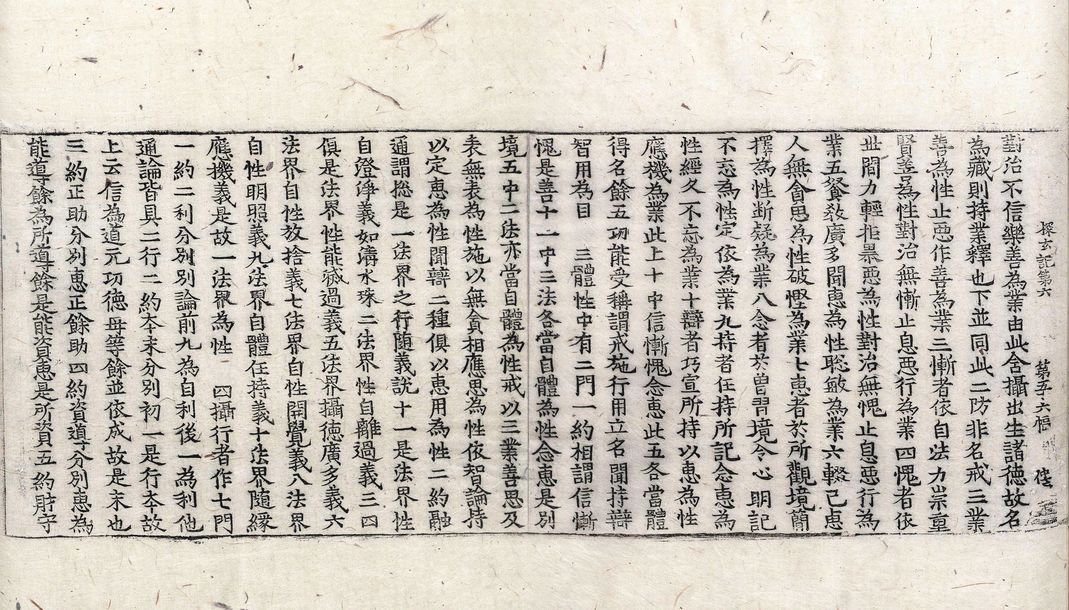 探玄記第六
對治不信樂善為業由此含攝出生諸德故名
為藏則持業釋也下並同此二防非名戒三業
善為性止惡作善為業三慚者依自法力崇重
賢善為性對治無慚止息惡行為業四愧者依
世間力輕拒暴惡為性對治無愧止息惡行為
業五飡教廣多聞恵為性聡敏為業六輟己恵
人無貪思為性破慳為業七恵者於所觀境簡
擇為性斷疑為業八念者於曽習境令心明記
不忘為性定依為業九持者任持所記念恵為
性經久不忘為業十辯者巧宣所持以恵為性
應機為業此上十中信慚愧念恵此五各當體
得名餘五功能受稱謂戒施行用立名聞持辯
智用為目　三體性中有二門一約相謂信慚
愧是善十一中三法各當自體為性念恵是別
境五中二法亦當自體為性戒以三業善思及
表無表為性施以無貪相應思為性依智論持
以定恵為性聞辯二種俱以恵用為性二約融
通謂揔是一法界之行随義說十一是法界性
自澄淨義如清水珠二法界性自離過義三四
俱是法界性能過義五法界攝徳廣多義六
法界自性放捨義七法界自性開覺義八法界
自性明照義九法界自體任持義十法界隨縁
應機義是故一法界為性　四攝行者作七門
一約二利分別別論前九為自利後一為利他
通論皆具二行二約本末分別初一是行本故
上云信為道元功徳母等餘並依成故是末也
三約正助分別恵正餘助四約資導分別恵為
能導餘為所導餘是能資恵是所資五約貯守